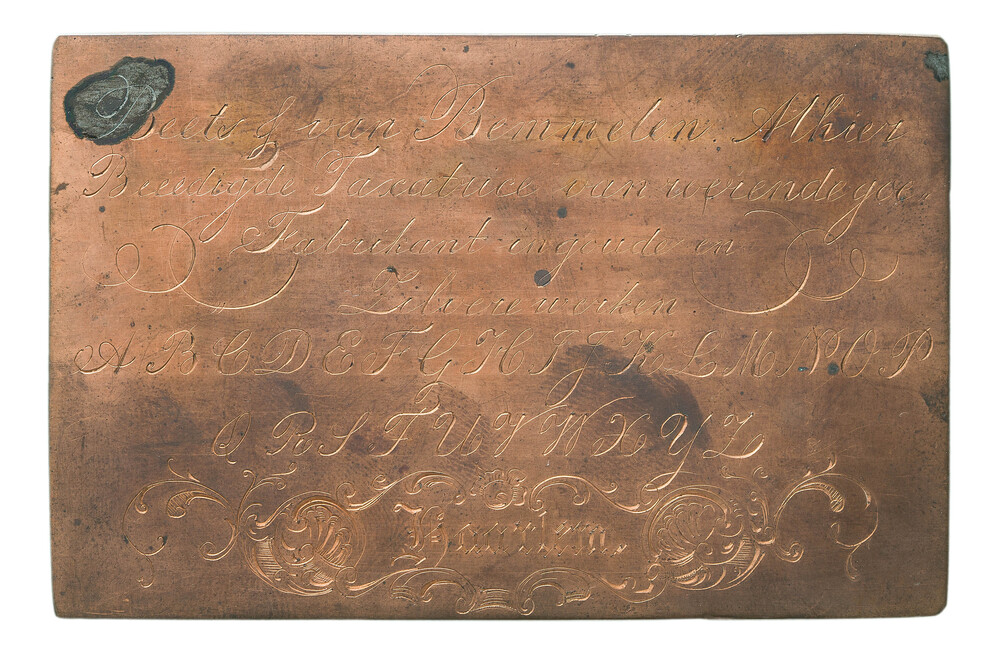 Beets & van Bemmelen. Alhier
Beeedigde Taxatrice van werende goe
Fabrikant in goude en
Zilvere werken.
A B C D E F G H I J K L M N O P
Q R S T U V W X Y Z
Haarlem.